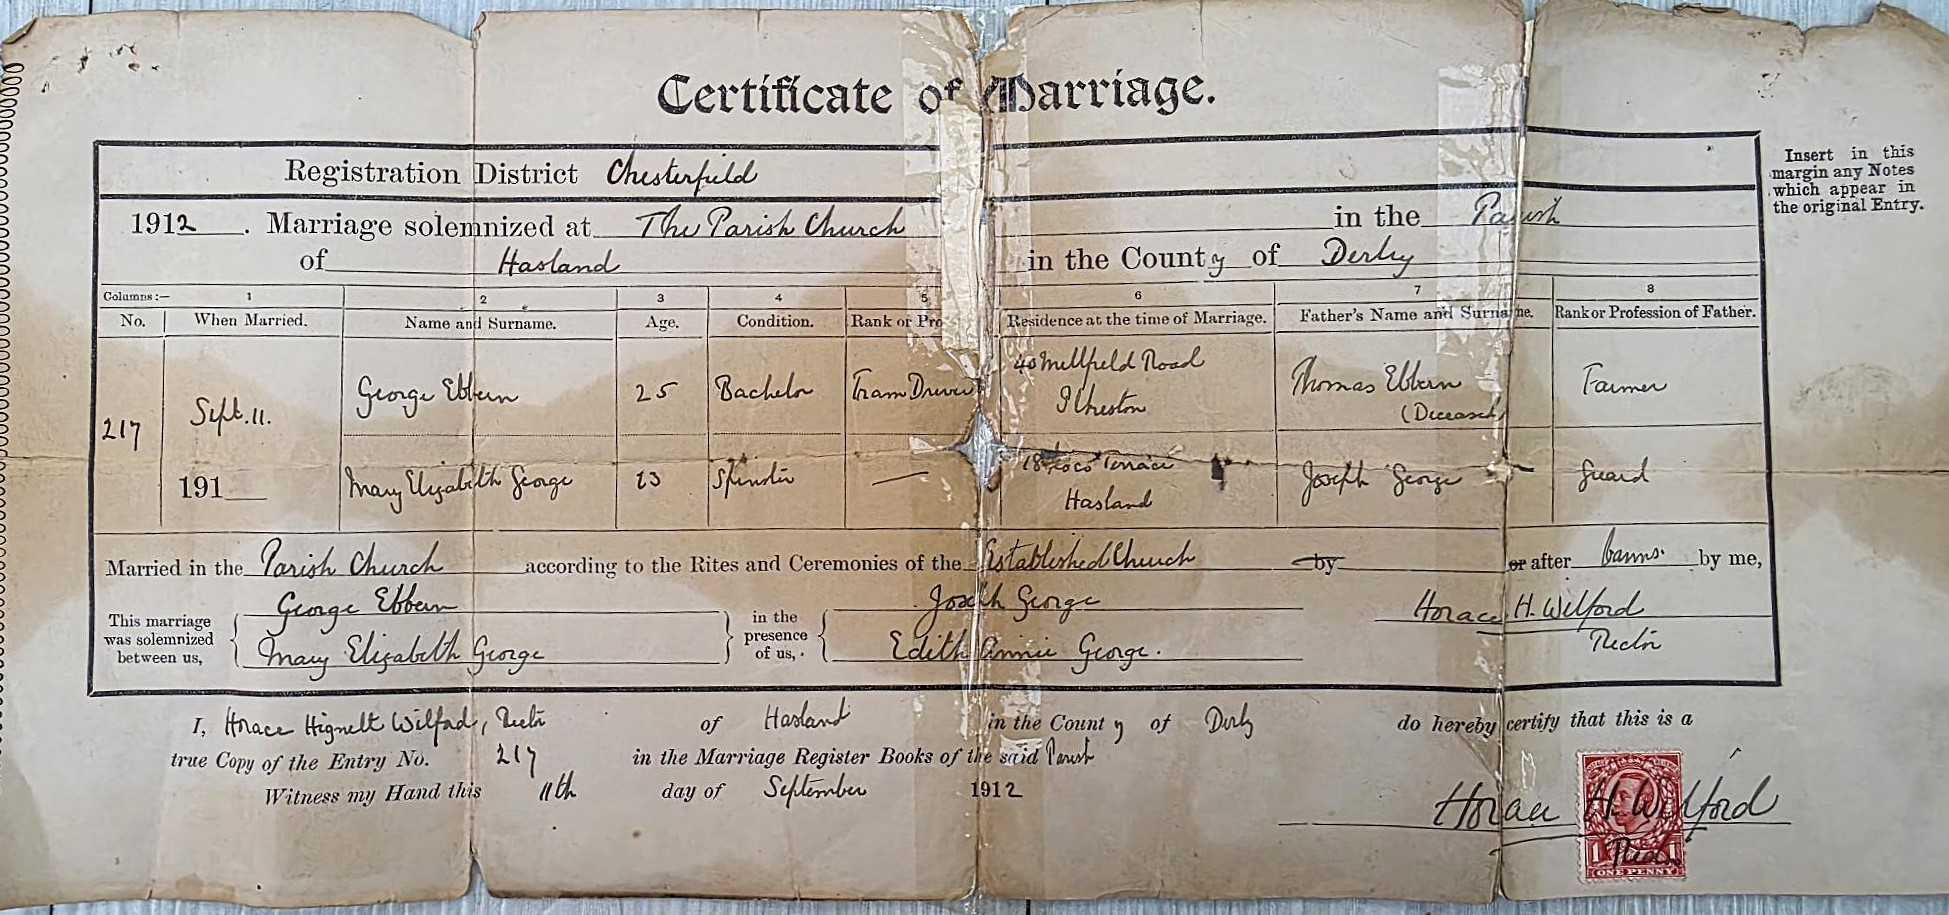 Certificate of Marriage.
Insert in this
margin any Notes
which appear in
the original Entry.
Registration District Chesterfield
1912. Marriage solemnized at The Parish Church in the Parish
of Hasland in the County of Derby
Columns:— 1 2 3 4 5 6 7 8
No. When Married. Name and Surname. Age. Condition. Rank or Pro Residence at the time of Marriage. Father's Name and Surname. Rank or Profession of Father.
217 Sept. 11. 191
George Ebbern 25 Bachelor Tram Driver 40 Millfield Road Ilkeston Thomas Ebbern (Deceased) Farmer
Mary Elizabeth George 23 Spinster — 18 Loco Terrace Hasland Joseph George Guard
Married in the Parish Church according to the Rites and Ceremonies of the Established Church by or after banns. by me,
This marriage
was solemnized
between us,
George Ebbern
Mary Elizabeth George
in the
presence
of us,
Joseph George
Edith Annie George.
Horace H. Wilford
Rector
I, Horace Hignett Wilford, Rector of Hasland in the County of Derby do hereby certify that this is a
true Copy of the Entry No. 217 in the Marriage Register Books of the said Parish
Witness my Hand this 11th day of September 1912
Horace H. Wilford
Rector
1 1
ONE PENNY